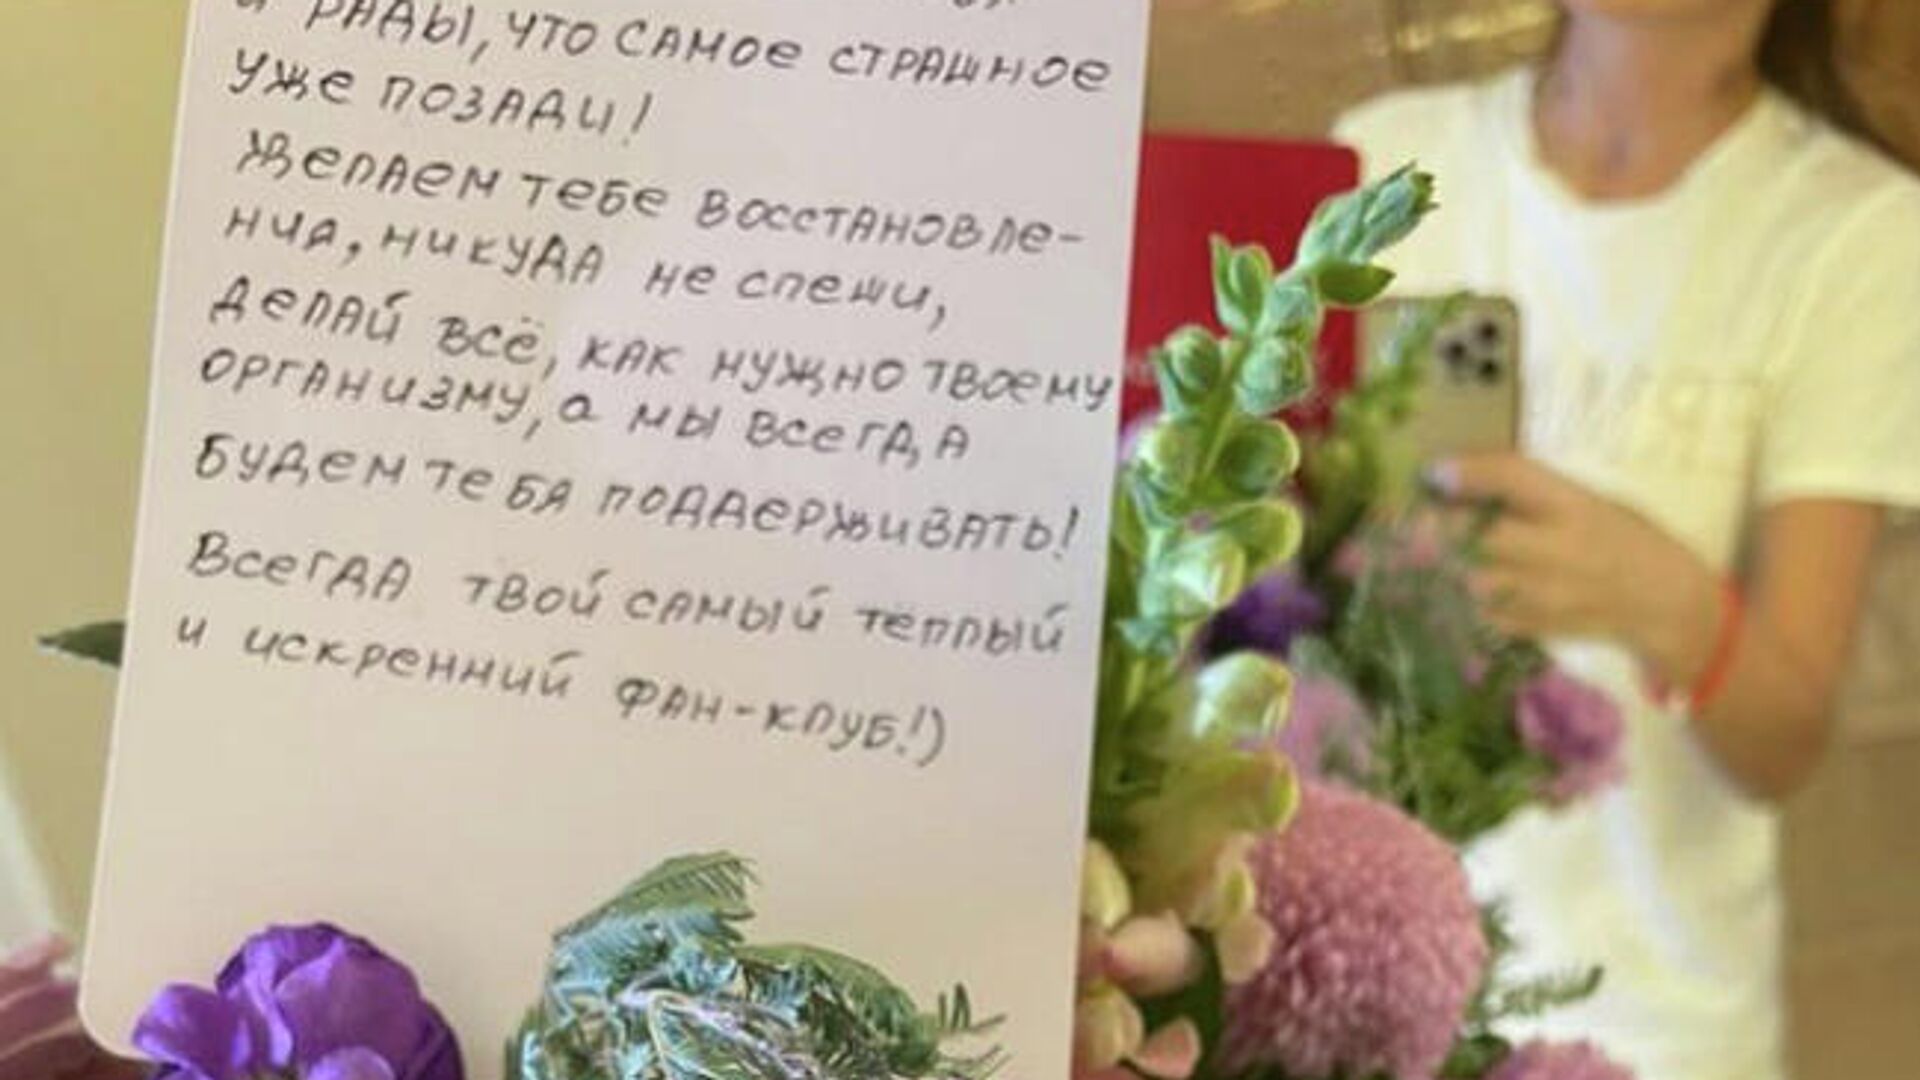 и рады, что самое страшное
уже позади!
Желаем тебе восстановле-
ния, никуда не спеши,
делай всё, как нужно твоему
организму, а мы всегда
будем тебя поддерживать!
Всегда твой самый теплый
и искренний фан-клуб!)